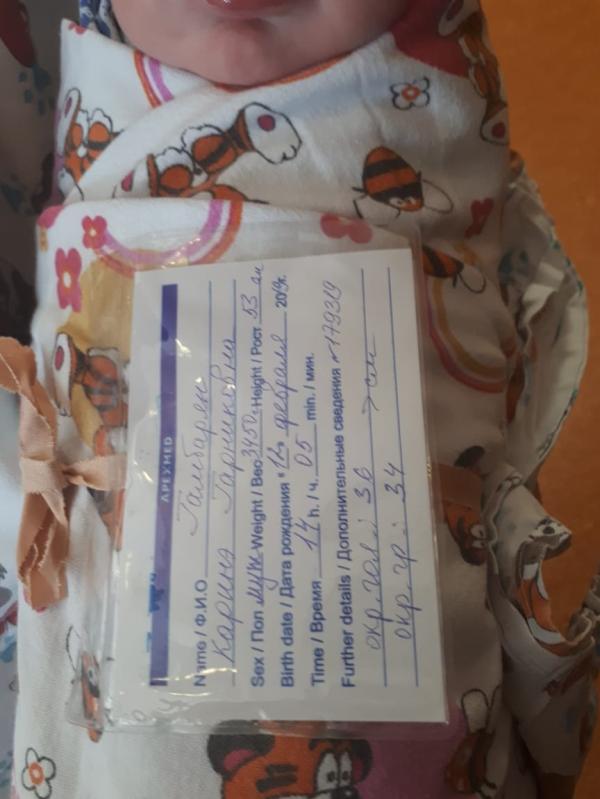 АРЕУМЕД
Name / Ф.И.О Гамбарян
Карина Гарниковна
Sex / Пол муж Weight / Вес 3450г Height / Рост 53 см
Birth date / Дата рождения " 14 " февраля 2019г.
Time / Время 14 h. / ч. 05 min. / мин.
Further details / Дополнительные сведения № 179319
окр. гол: 36 см
окр. гр.: 34